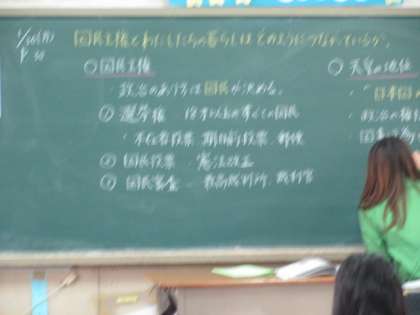 1/30(月)
P 30
国民主権とわたしたちの暮らしは どのようにつながっているか。
○国民主権
・政治のあり方は国民が決める。
① 選挙権 18才以上のすべての国民
・不在者投票 期日前投票 郵便
② 国民投票 憲法改正
③ 国民審査 最高裁判所 裁判官
○ 天皇の地位
・日本国
・政治の権
国事